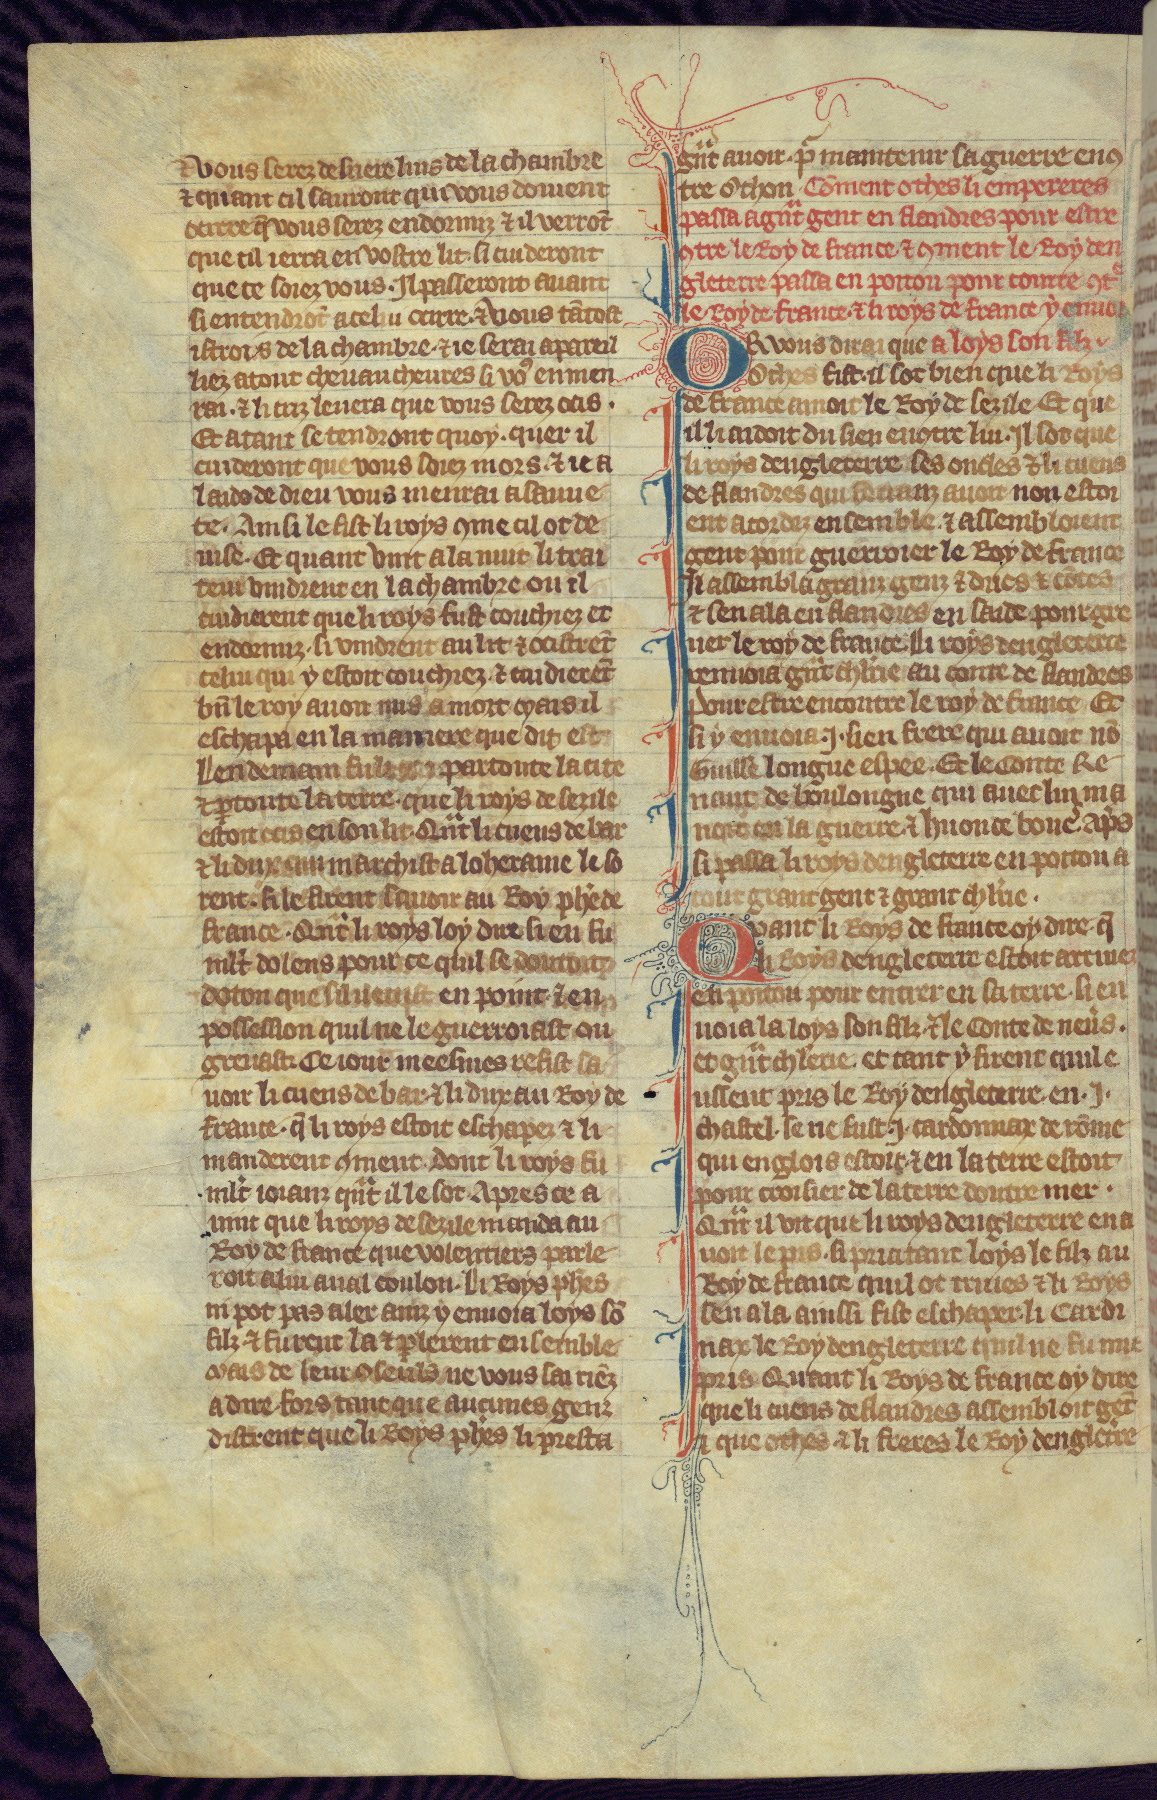 ⁊ vous serez derriere lius de la chambre
⁊ quant cil sauront qui vous doiuent
ocirre q̃ vous serez endormiz ⁊ il verrõt
que cil ierra en vostre lit. si cuideront
que ce soiez vous. Il passeront auant
si entendrõt a celui ocirre. ⁊ vous tãtost
istrois de la chambre. ⁊ ie serai apareil
liez a tout cheuaucheures si vo⁹ en men
rai. ⁊ li criz leuera que vous serez ocis.
Et a tant se tendront quoy. quer il
cuideront que vous soiez mors. ⁊ ie a
laide de dieu vous menrai a sauue
te. Ainsi le fist li roys ꝯme cil ot de
uise. Et quant vint a la nuit li trai
teur vindrent en la chambre ou il
cuidierent que li roys fust couchiez et
endormiz. si vindrent au lit ⁊ ocistrẽt
celui qui y estoit couchiez. ⁊ cuidierẽt
bñ le roy auoir mis a mort. mais il
eschapa en la maniere que dit est.
Lendemain fu li criz par toute la cite
⁊ ꝑ toute la terre. que li roys de sezile
estoit ocis en son lit. Q̃nt li cuens de bar
⁊ li dux qui marchist a loheraine le so
rent. si le firent sauoir au Roy phẽ de
france. Q̃nt li roys loy dire si en fu
mlt̃ dolens pour ce quil se doutoit
doton que sil uenist en point. ⁊ en
possession quil ne le guerroiast ou
greuast. Ce iour meesmes refist sa
uoir li cuens de bar. ⁊ li dux au Roy de
france. q̃ li roys estoit eschapez ⁊ li
manderent ꝯment. dont li roys fu
mlt̃ ioianz q̃nt il le sot. Apres ce a
uint que li roys de sezile manda au
Roy de france que volentiers parle
roit a lui a ual coulon. Li Roys phẽs
ni pot pas aler ainz y enuoia loys sõ
filz ⁊ furent la ⁊ ꝑlerent ensemble
mais de leur ꝯseulz ne vous sai riẽz
a dire. fors tant que aucunes genz
distrent que li Roys phẽs li presta
g̃nt auoir. p̃ maintenir sa guerre enꝯ
tre Othon. Cõment othes li empereres
passa a g̃nt gent en flandres pour estre
ꝯtre le Roy de france ⁊ ꝯment le Roy den
gleterre passa en poitou pour courre ꝯt̃
le Roy de france. ⁊ li roys de france y enuoi
OR vous dirai que a loys son filz
Othes fist. il sot bien que li Roys
de france amoit le Roy de sezile Et que
il li aidoit du sien encꝯtre lui. Il sot que
li roys dengleterre ses oncles ⁊ li cuens
de flandres qui ferranz auoit non estoi
ent acordez ensemble. ⁊ assembloient
gent pour guerroier le Roy de france
Il assembla granz genz ⁊ dues ⁊ cõtes
⁊ sen ala en flandres en laide pour gre
uer le roy de france. Li roys dengleterre
renuoia g̃nt chlr̃ie au conte de flandres
Pour estre encontre le roy de france. Et
si y enuoia .j. sien frere qui auoit nõ
Guille longue espee. Et le Conte Re
naut de boulongue qui auec lui ma
noit en la guerre. ⁊ huon de boue. Ap̃s
si passa li roys dengleterre en poitou a
tout grant gent ⁊ grant chlr̃ie.
Quant li Roys de france oy dire. q̃
li Roys dengleterre estoit arriuez
en poitou pour entrer en sa terre. si en
uoia la loys son filz. ⁊ le Conte de neũs.
et g̃nt chlr̃erie. et tant y firent quil e
ussent pris le Roy dengleterre. en .j.
chastel. se ne fust .j. cardonnax de rõme
qui englois estoit. ⁊ en la terre estoit
pour croisier de la terre doutre mer.
Q̃nt il vit que li roys dengleterre en a
uoit le pis. si pria tant loys le filz au
Roy de france quil ot triues ⁊ li Roys
sen ala. ainssi fist eschaper li Cardi
nax le Roy dengleterre quil ne fu mie
pris. Quant li Roys de france oy dire
que li cuens de flandres assembloit gẽt
⁊ que othes. ⁊ li freres le Roy dengletr̃re